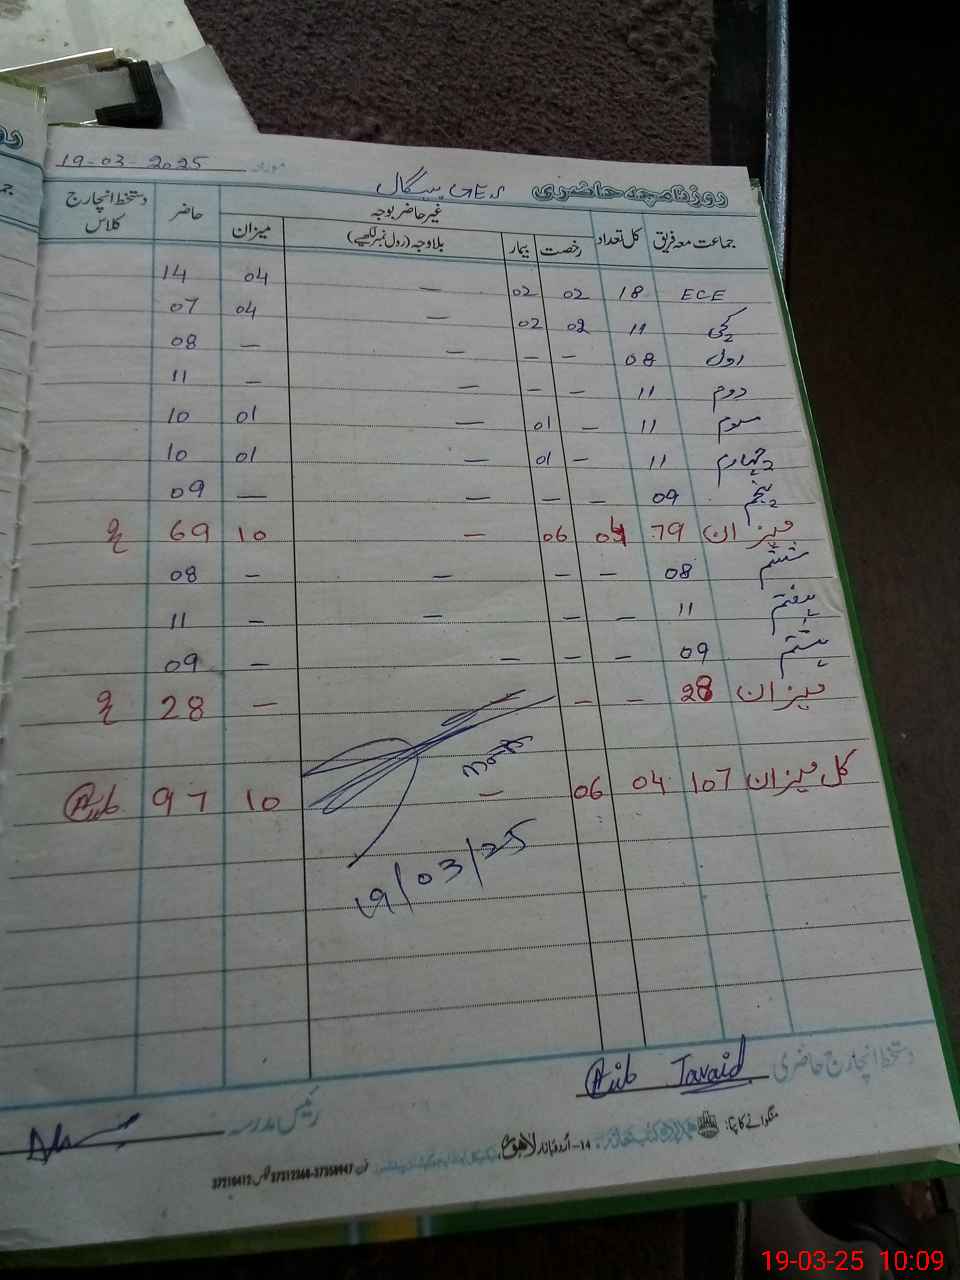 روزنامچہ حاضری GES بیگال مورخہ 19-03-2025
جماعت معہ فریق کل تعداد غیر حاضر بوجہ حاضر دستخط انچارج کلاس
رخصت بیمار بلاوجہ (رول نمبر لکھیے) میزان
ECE 18 02 02 — 04 14
کچی 11 02 02 — 04 07
اول 08 — — — — 08
دوم 11 — — — — 11
سوم 11 — 01 — 01 10
چہارم 11 — 01 — 01 10
پنجم 09 — — — — 09
میزان 79 04 06 — 10 69
ششم 08 — — — — 08
ہفتم 11 — — — — 11
ہشتم 09 — — — — 09
میزان 28 — — — 28
کل میزان 107 04 06 — 10 97
19/03/25
دستخط انچارج حاضری Javaid
رئیس مدرسہ
منگوانے کا پتہ: 14-اُردو بازار لاہور فون 37312360-37350947 فیکس 37210412
19-03-25 10:09